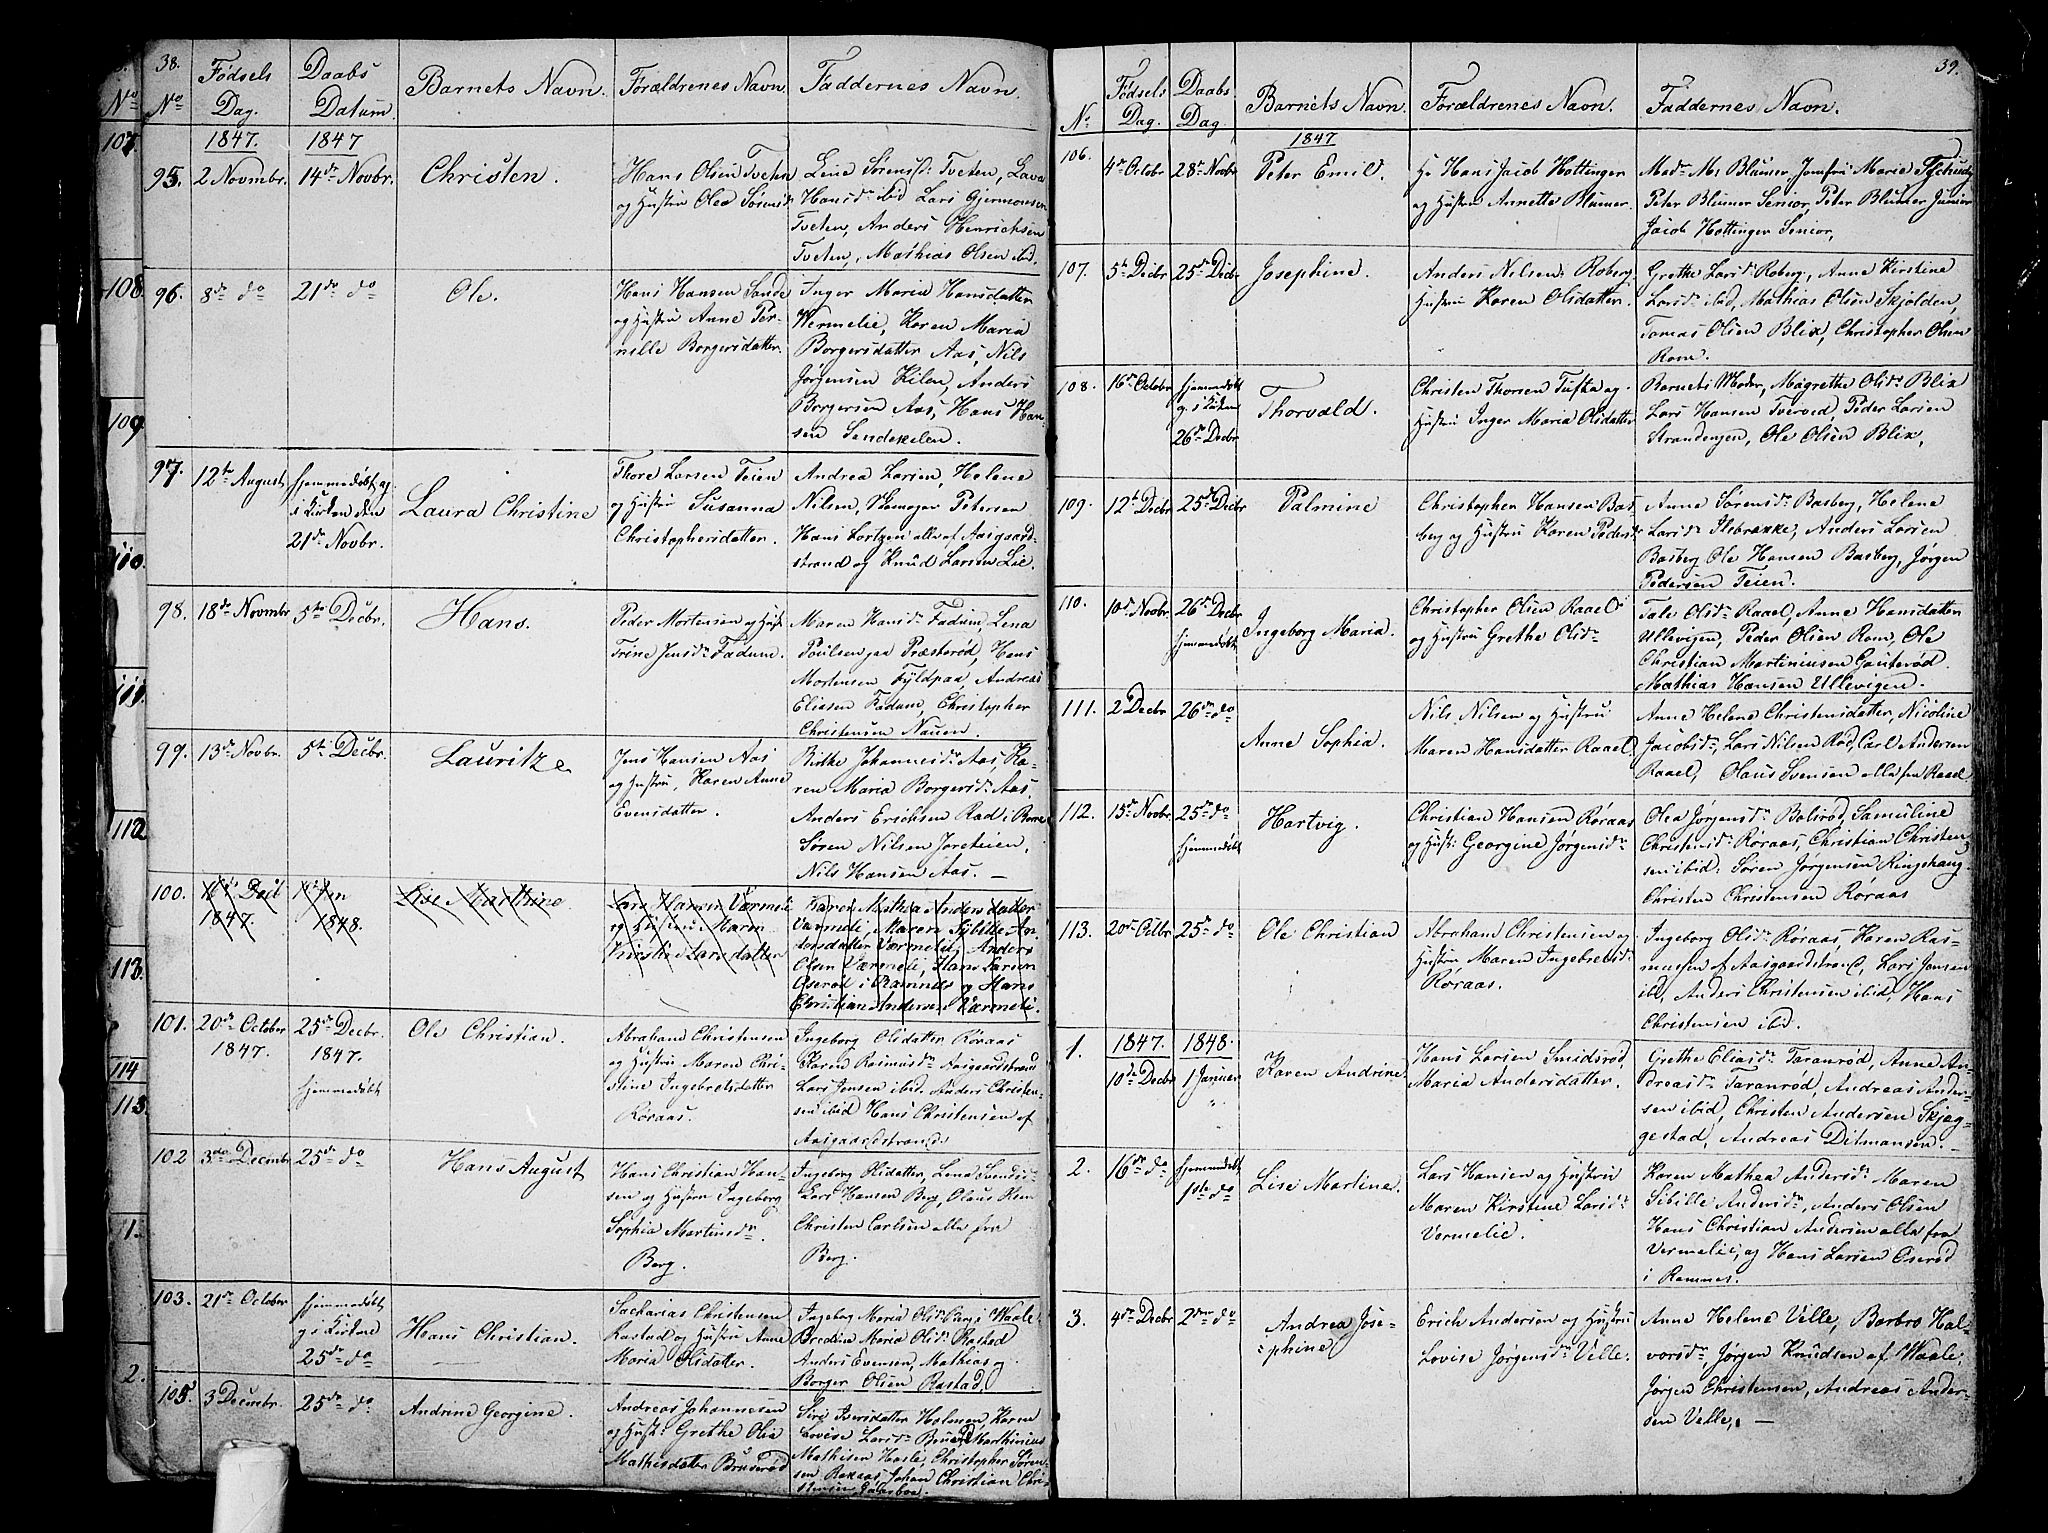 38.
No
Fødsels
Dag.
Daabs
Datum.
Barnets Navn.
Forældrenes Navn
Faddernes Navn.
1847.
1847
95.
2 Novmbr.
14de Novbr.
Christen.
Hans Olsen Tveten
og Hustru Olea Sørensd:
Lene Sørensd: Tveten, Lava
Hansd: ibid Lars Gjermonsen
Tveten, Anders Henrichsen
Tveten, Mathias Olsen ibid.
96.
8de do
21de do
Ole.
Hans Hansen Sande
og Hustru Anne Per-
nille Borgersdatter.
Inger Maria Hansdatter
Wermelie, Karen Maria
Borgersdatter Aas, Nils
Jørgensen Kilen, Anders
Borgersen Aas, Hans Han-
sen Sendekilen.
97.
12te August
hjemmedøbt og
i Kirken den
21de Novbr.
Laura Christine
Thore Larsen Teien
og Hustru Susanna
Christophersdatter.
Andrea Larsen, Helene
Nilsen, Petersen
Hans Lortzen alle af Aasgaard-
strand og Knud Larsen Lie.
98.
18de Novmbr
5te Decbr.
Hans.
Peder Mortensen og Hust:
Trine Jensdr Fadum.
Maren Hansdr Fadum, Lena
Poulsen paa Præsterød, Hans
Mortensen Fyldpaa Andreas
Eliasen Fadum, Christopher
Christensen Nauen.
99.
13de Novbr.
5te Decbr.
Lauritze
Jens Hansen Aas
og Hustru, Karen Anne
Evensdatter.
Birthe Johannesdr Aas, Ka-
ren Maria Borgersdr Aas.
Anders Erichsen Rad i Borre
Søren Nilsen Joreteien,
Nils Hansen Aas. —
100.
16de Decb
1847.
1ste Jan
1848.
Lise Marthine
Lars Hansen Værmeli
og Hustru Maren
Kirstie Larsdatter
Karen Mathea Andersdatter
Værmeli, Maren Sybille An-
dersdatter Værmelie, Anders
Olsen Værmeli, Hans Larsen
Oserød i Ramnes og Hans
Christian Andersen Værmeli.
101.
20de October
1847.
25de Decbr.
1847.
hjemmedøbt
Ole Christian.
Abraham Christensen
og Hustru Maren Chri-
stine Ingebretsdatter
Røraas.
Ingeborg Olsdatter Røraas
Karen Rasmusdr Aasgaardstrand
Lars Jensen ibid. Anders Christen-
sen ibid Hans Christensen af
Aasgaardstrand.
102
3die Decmbr
25de do
Hans August
Hans Christian Han-
sen og Hustru Ingeborg
Sophia Martinsdr
Berg.
Ingeborg Olsdatter, Lena Svendsd:
Lars Hansen Berg, Olaus Olsen
Christen Carlsen alle fra
Berg.
103.
21de October
hjemmedøbt
og i Kirkene
25de do
Hans Christian.
Sacharias Christensen
Rastad og Hustru Anne
Maria Olsdatter.
Ingebor Maria Olsdr Berg i Waale
Bredine Maria Olsdr Rastad
Anders Evensen, Mathias og
Borger Olsen Rastad.
105.
3 Decembr.
25de do
Andrine Georgine.
Andreas Johannesen
og Hust: Grethe Olia
Mathisdatter Bruserød
Siri Iversdatter Holmen, Karen
Lovise Larsdr Marthinius
Mathisen Hasle, Christopher Søren-
sen Røraas Johan Christian Chri-
stensen
39.
No
Fødsels
Dag.
Daabs
Dag
Barnets Navn.
Forældrenes Navn.
Faddernes Navn.
1847
106.
4de Octobr
28de Novbr
Peter Emil.
Hr Hans Jacob Hottinger
og Hustru Annette Blumer.
Madm M: Blumer, Jomfru Maria Tschudy
Peter Blumer Senior, Peter Blumer Junior
Jacob Hottinger Senior,
107.
5te Decbr
25de Decbr
Josephine.
Anders Nilsen Roberg
Hustru Karen Olsdatter.
Grethe Larsdr Roberg, Anne Kirstine
Larsdr ibid, Mathias Olsen Skjolden,
Tomas Olsen Blix, Christopher Olsen
Rom.
108.
16de Octobr
hjemmedøbt
og i Kirken
26de Decbr
Thorvald.
Christen Thorsen Tufta og
Hustru Inger Maria Olsdatter
Barnets Moder, Magrethe Olsdr Blix
Lars Hansen Tverved, Peder Larsen
Strandengen, Ole Olsen Blix,
109.
12te Decbr
25de Decbr
Palmine
Christopher Hansen Bas-
berg og Hustru Karen Pedersd:
Anne Sørensdr Basberg, Helene
Larsdr Ilebrække, Anders Larsen
Basberg Ole Hansen Basberg, Jørgen
Pedersen Teien.
110.
10de Novbr
26de Decbr
hjemmedøbt
Ingeborg Maria.
Christopher Olsen Raael
og Hustru Grethe Olsdr
Tale Olsdr Raael, Anne Hansdatter
Ullevigen, Peder Olsen Rom, Ole
Christian Martiniusen Gauterød.
Mathias Hansen Ullevigen.
111.
2 Decbr
26de do
Anne Sophia.
Nils Nilsen og Hustru
Maren Hansdatter Raael
Anne Helene Christensdatter, Nicoline
Jacobsdr, Lars Nilsen Rød, Carl Andersen
Raael, Olaus Svensen alle fra Raael
112.
15de Novbr.
25de do
hjemmedøbt
Hartvig.
Christian Hansen Røraas
og Hust: Georgine Jørgensdr
Olea Jørgensdr Bolsrød, Samuline
Christensdr Røraas, Christian Christen-
sen ibid: Søren Jørgensen Ringshaug
Christen Christensen Røraas
113.
20de Octbr
25de do
Ole Christian
Abraham Christensen og
Hustru Maren Ingebretsdr
Røraas.
Ingeborg Olsdr Røraas, Karen Ras-
mussen af Aasgaardstrand, Lars Jensen
ibid, Anders Christensen ibid, Hans
Christensen ibid.
1.
1847.
10de Decbr
1848.
1 Januer
Karen Andrine
Hans Larsen Smidsrød,
Maria Andersdatter.
Grethe Eliasdr Taranrød, Anne An-
dreasdr Taranrød, Andreas Ander-
sen ibid, Christen Andersen Skjeg-
gestad, Andreas Ditmansen. —
2.
16de do
hjemmedøbt
1ste do
Lise Martine.
Lars Hansen og Hustru
Maren Kirstine Larsdr
Vermelie.
Karen Mathea Andersdr Maren
Sibille Andersdr, Anders Olsen
Hans Christian Andersen alle fra
Vermelie, og Hans Larsen Oserød
i Ramnes.
3.
4de Decbr
2den do
Andrea Jose-
phine
Erich Andersen og Hustru
Lovise Jørgensdr Velle.
Anne Helene Velle, Barbro Hal-
vorsdr Jørgen Knudsen af Waale,
Jørgen Christensen, Andreas Ander-
sen Velle. —
No
107.
108.
109
110.
111.
112
113.
114
115.
1.
2.